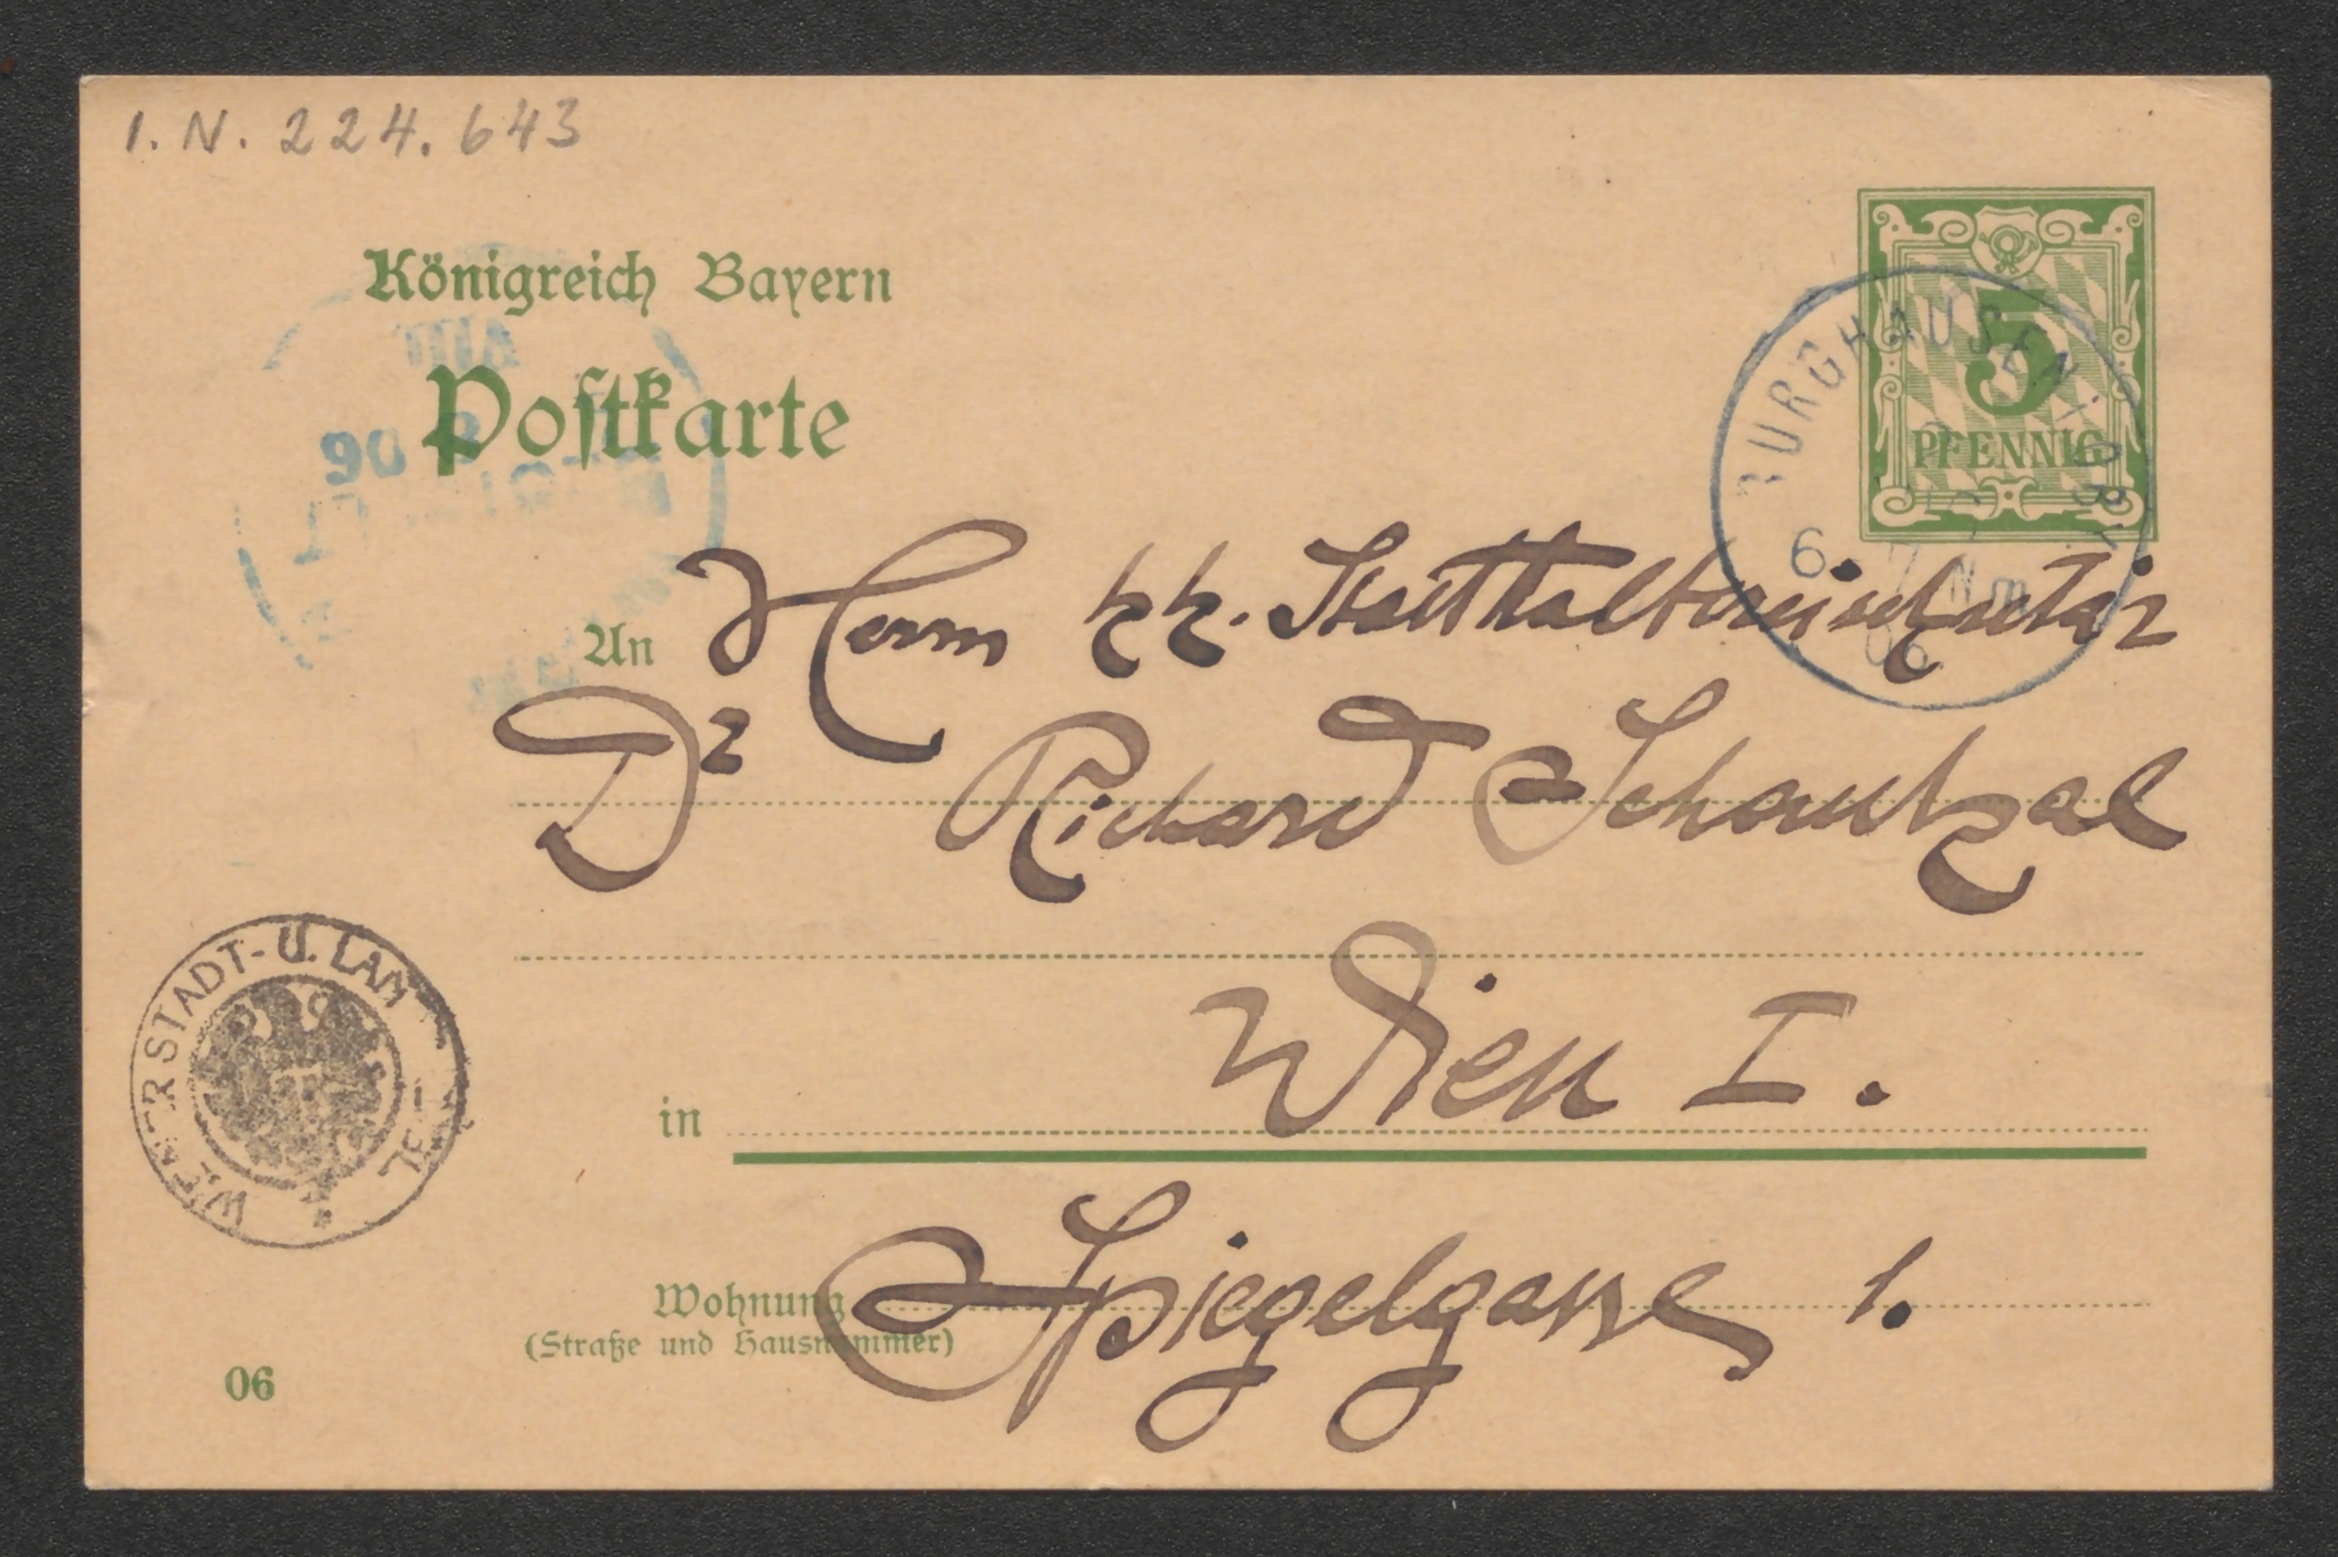 I. N. 224.643
Königreich Bayern
Postkarte
5
PFENNIG
BURGHAUSEN
6
06
An Herrn kk. Statthaltereisekretär
Dr Richard Schaukal
in Wien I.
WIENER STADT- U.
Wohnung Spiegelgasse 1.
(Straße und Hausnummer)
06